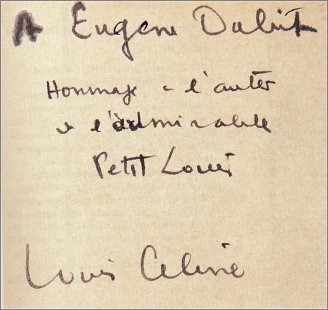 A Eugène Dabit
Hommage à l'auter
de l'admirable
Petit Louis
Louis Céline